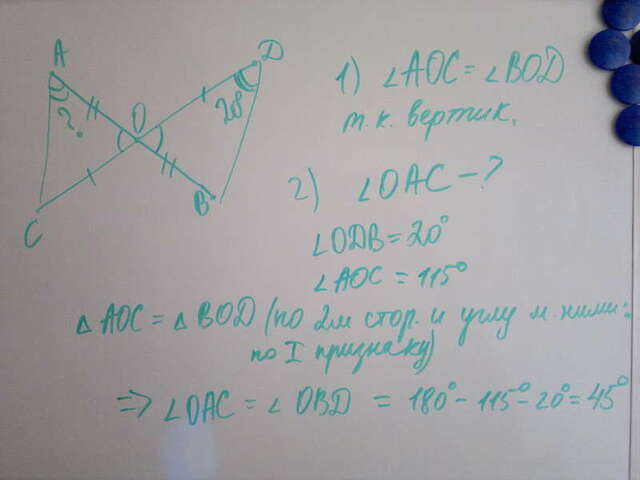 A
D
O
?
20°
C
B
1) ∠AOC = ∠BOD
т.к. вертик.
2) ∠OAC - ?
∠ODB = 20°
∠AOC = 115°
△ AOC = △ BOD (по 2м стор. и углу м. ними:
по I признаку)
=> ∠OAC = ∠OBD = 180° - 115° - 20° = 45°